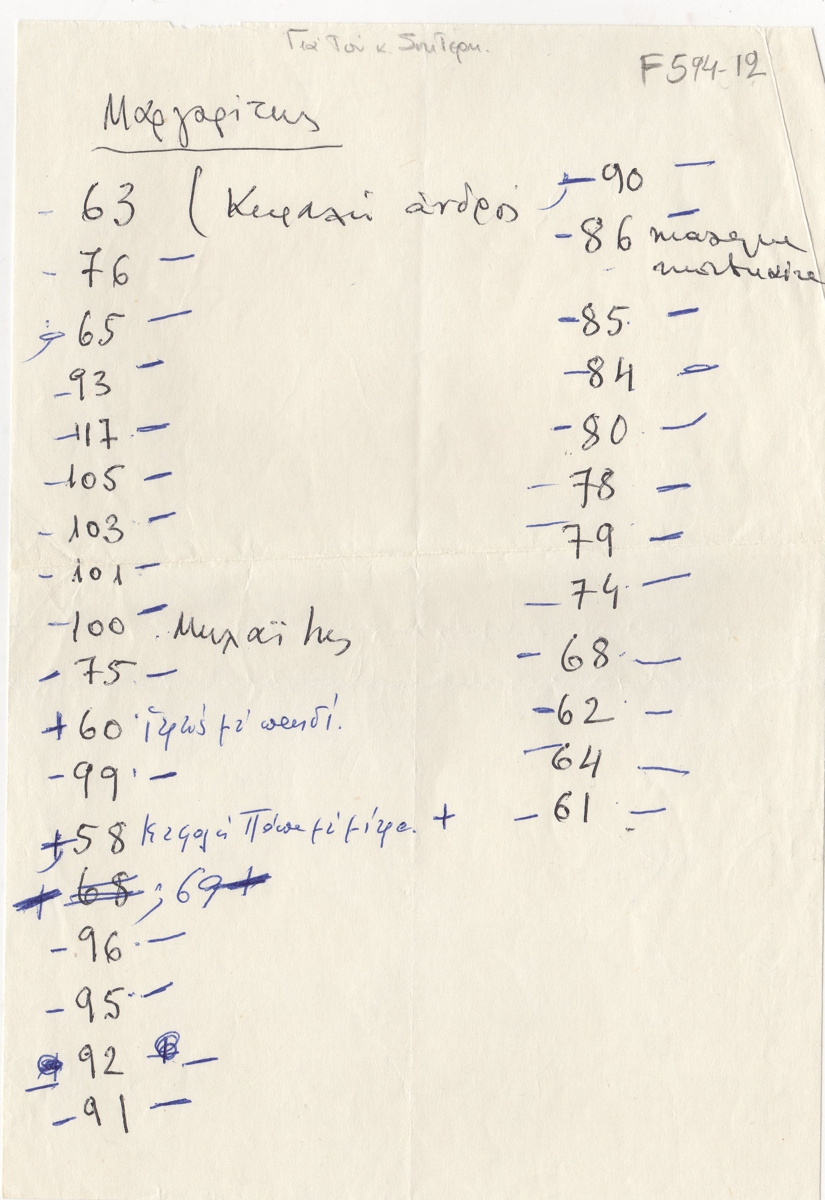 Για τον κ.
F594-12
Μαργαρίτης
- 63 (Κεφαλή ἀνδρός
- 76 -
65 -
- 93 -
- 117 -
- 105 -
- 103 -
- 101 -
- 100 -
- 75 -
+ 60 με παιδί.
- 99 -
+ 58 Κεφαλή Πάπα με μίτρα. +
+ 68 ; 69 +
- 96 -
- 95 -
92 -
- 91 -
- 90 -
- 86 - masque
mortuaire
- 85 -
- 84 -
- 80 -
- 78 -
- 79 -
- 74 -
- 68 -
- 62 -
- 64 -
- 61 -